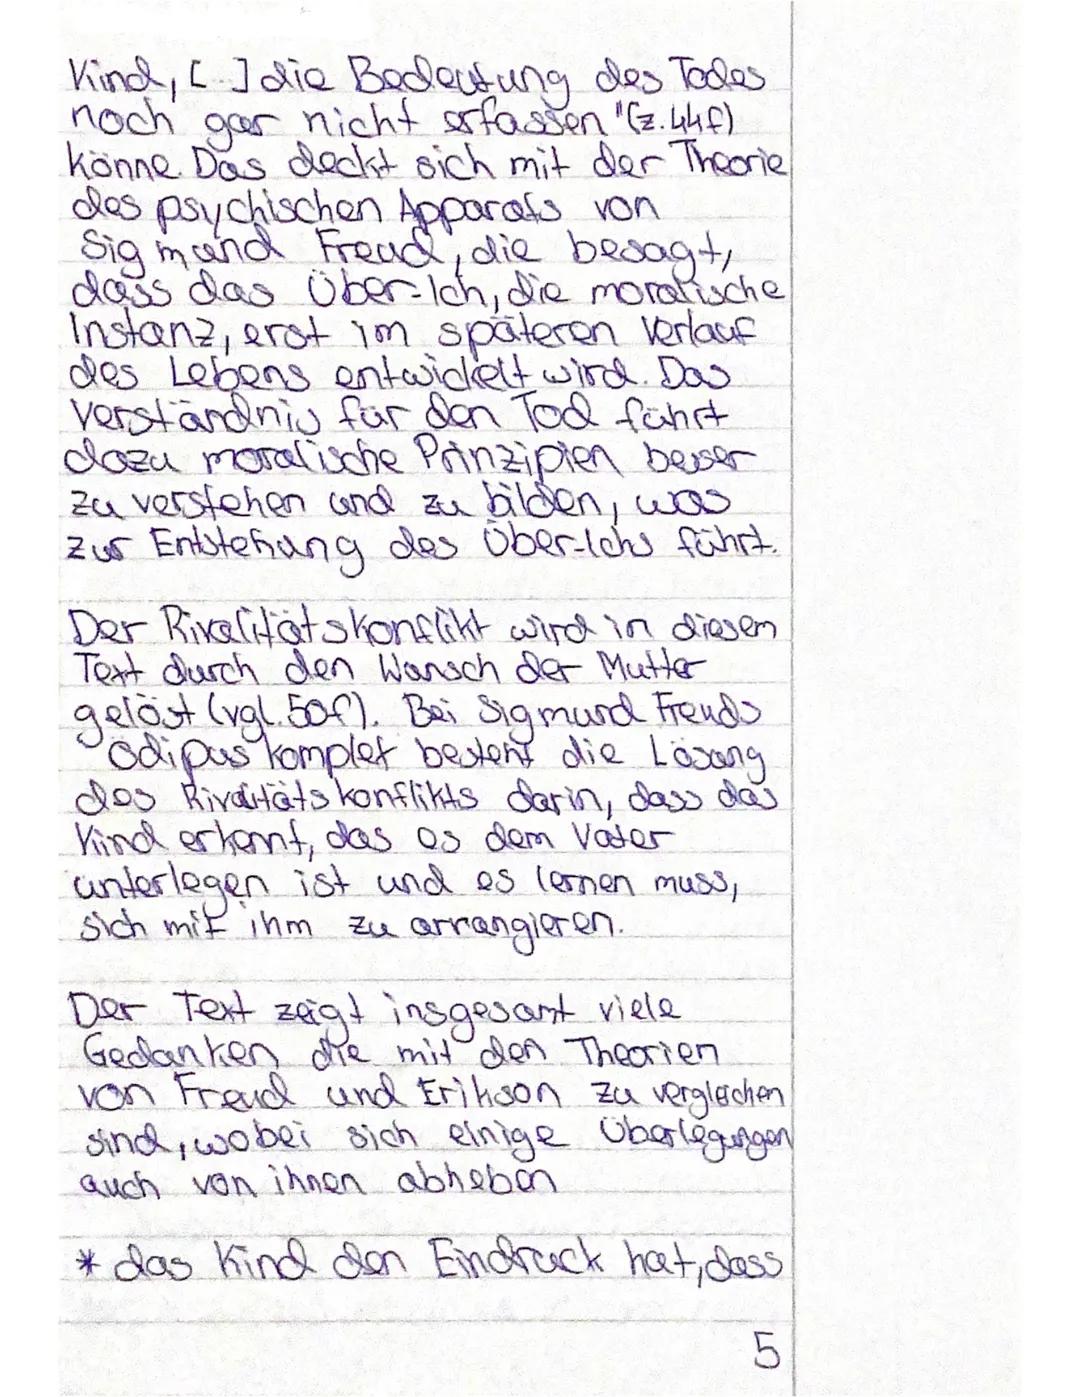 Kind, [..] die Bedeutung des Todes
noch gar nicht erfassen "(z.44f)
könne. Das deckt sich mit der Theorie
des psychischen Apparats von
Sigmund Freud, die besagt,
dass das Über-Ich, die moralische
Instanz, erst im späteren Verlauf
des Lebens entwickelt wird. Das
Verständnis für den Tod führt
dazu moralische Prinzipien besser
zu verstehen und zu bilden, was
zur Entstehung des Über-Ichs führt.
Der Rivalitätskonflikt wird in diesem
Text durch den Wunsch der Mutter
gelöst (vgl. 50f). Bei Sigmund Freuds
Ödipuskomplex besteht die Lösung
des Rivalitätskonflikts darin, dass das
Kind erkennt, das es dem Vater
unterlegen ist und es lernen muss,
sich mit ihm zu arrangieren.
Der Text zeigt insgesamt viele
Gedanken die mit den Theorien
von Freud und Erikson zu vergleichen
sind, wobei sich einige Überlegungen
auch von ihnen abheben
* das Kind den Eindruck hat, dass
5